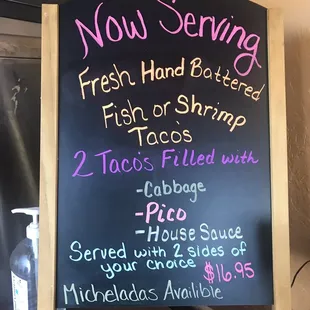 Now Serving
Fresh Hand Battered
Fish or Shrimp
Taco's
2 Taco's Filled with
-Cabbage
-Pico
-House Sauce
Served with 2 sides of
your choice $16.95
Micheladas Availible